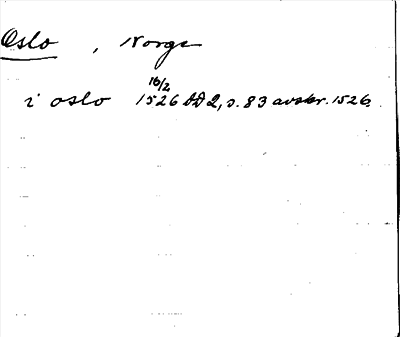 Oslo, Norge
16/2
i oslo 1526 DD 2, s. 83 avskr. 1526.